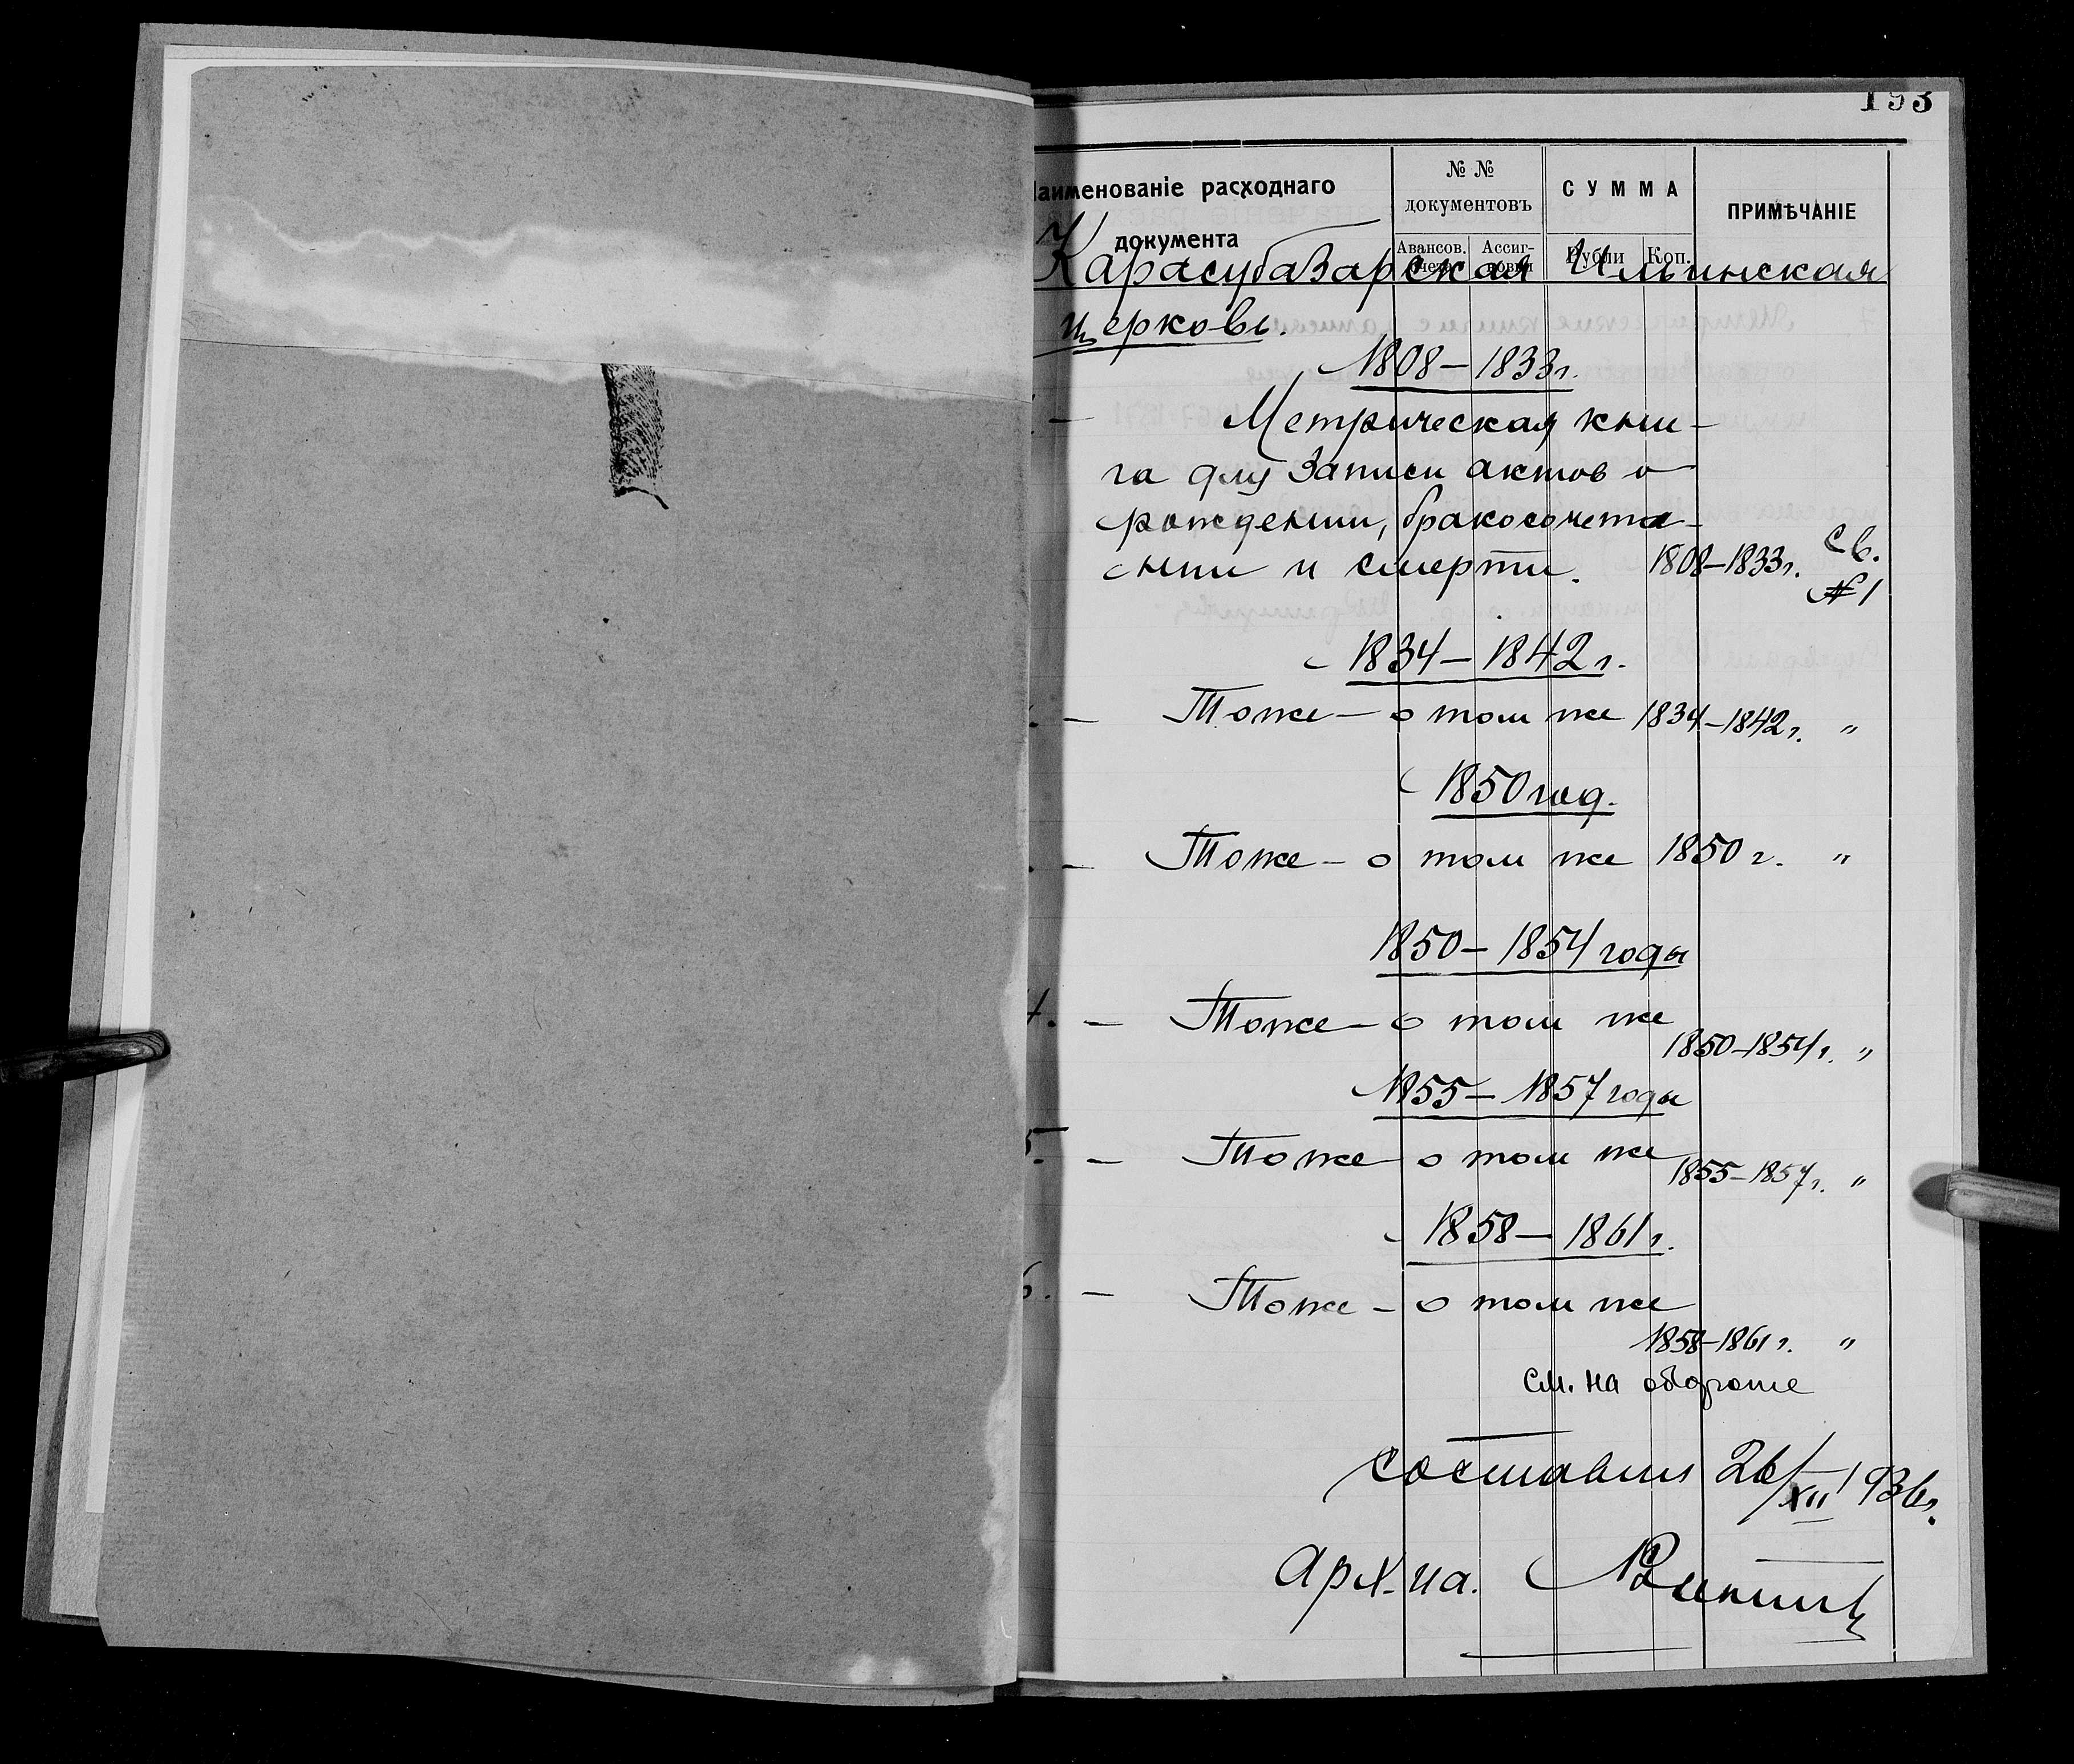 193
Наименованіе расходнаго
документа
№ № документовъ
Авансов. Ассиг-
СУММА
Рубли Коп.
ПРИМѢЧАНІЕ
Карасубазарская Ильинская
церковь.
1808–1833г.
– Метрическая кни-
га для записи актов о
рождении, бракосочета-
нии и смерти. 1808–1833г. Св.
№1
1834–1842г.
– Тоже – о том же 1834–1842г. "
1850 год.
– Тоже – о том же 1850 г. "
1850–1854 годы
4. – Тоже – о том же
1850–1854г. "
1855–1857 годы
5. – Тоже о том же 1855–1857г. "
1858–1861г.
6. – Тоже – о том же
1858–1861г. "
см. на обороте
составил 26/XII 1936г.
Арх-иа.